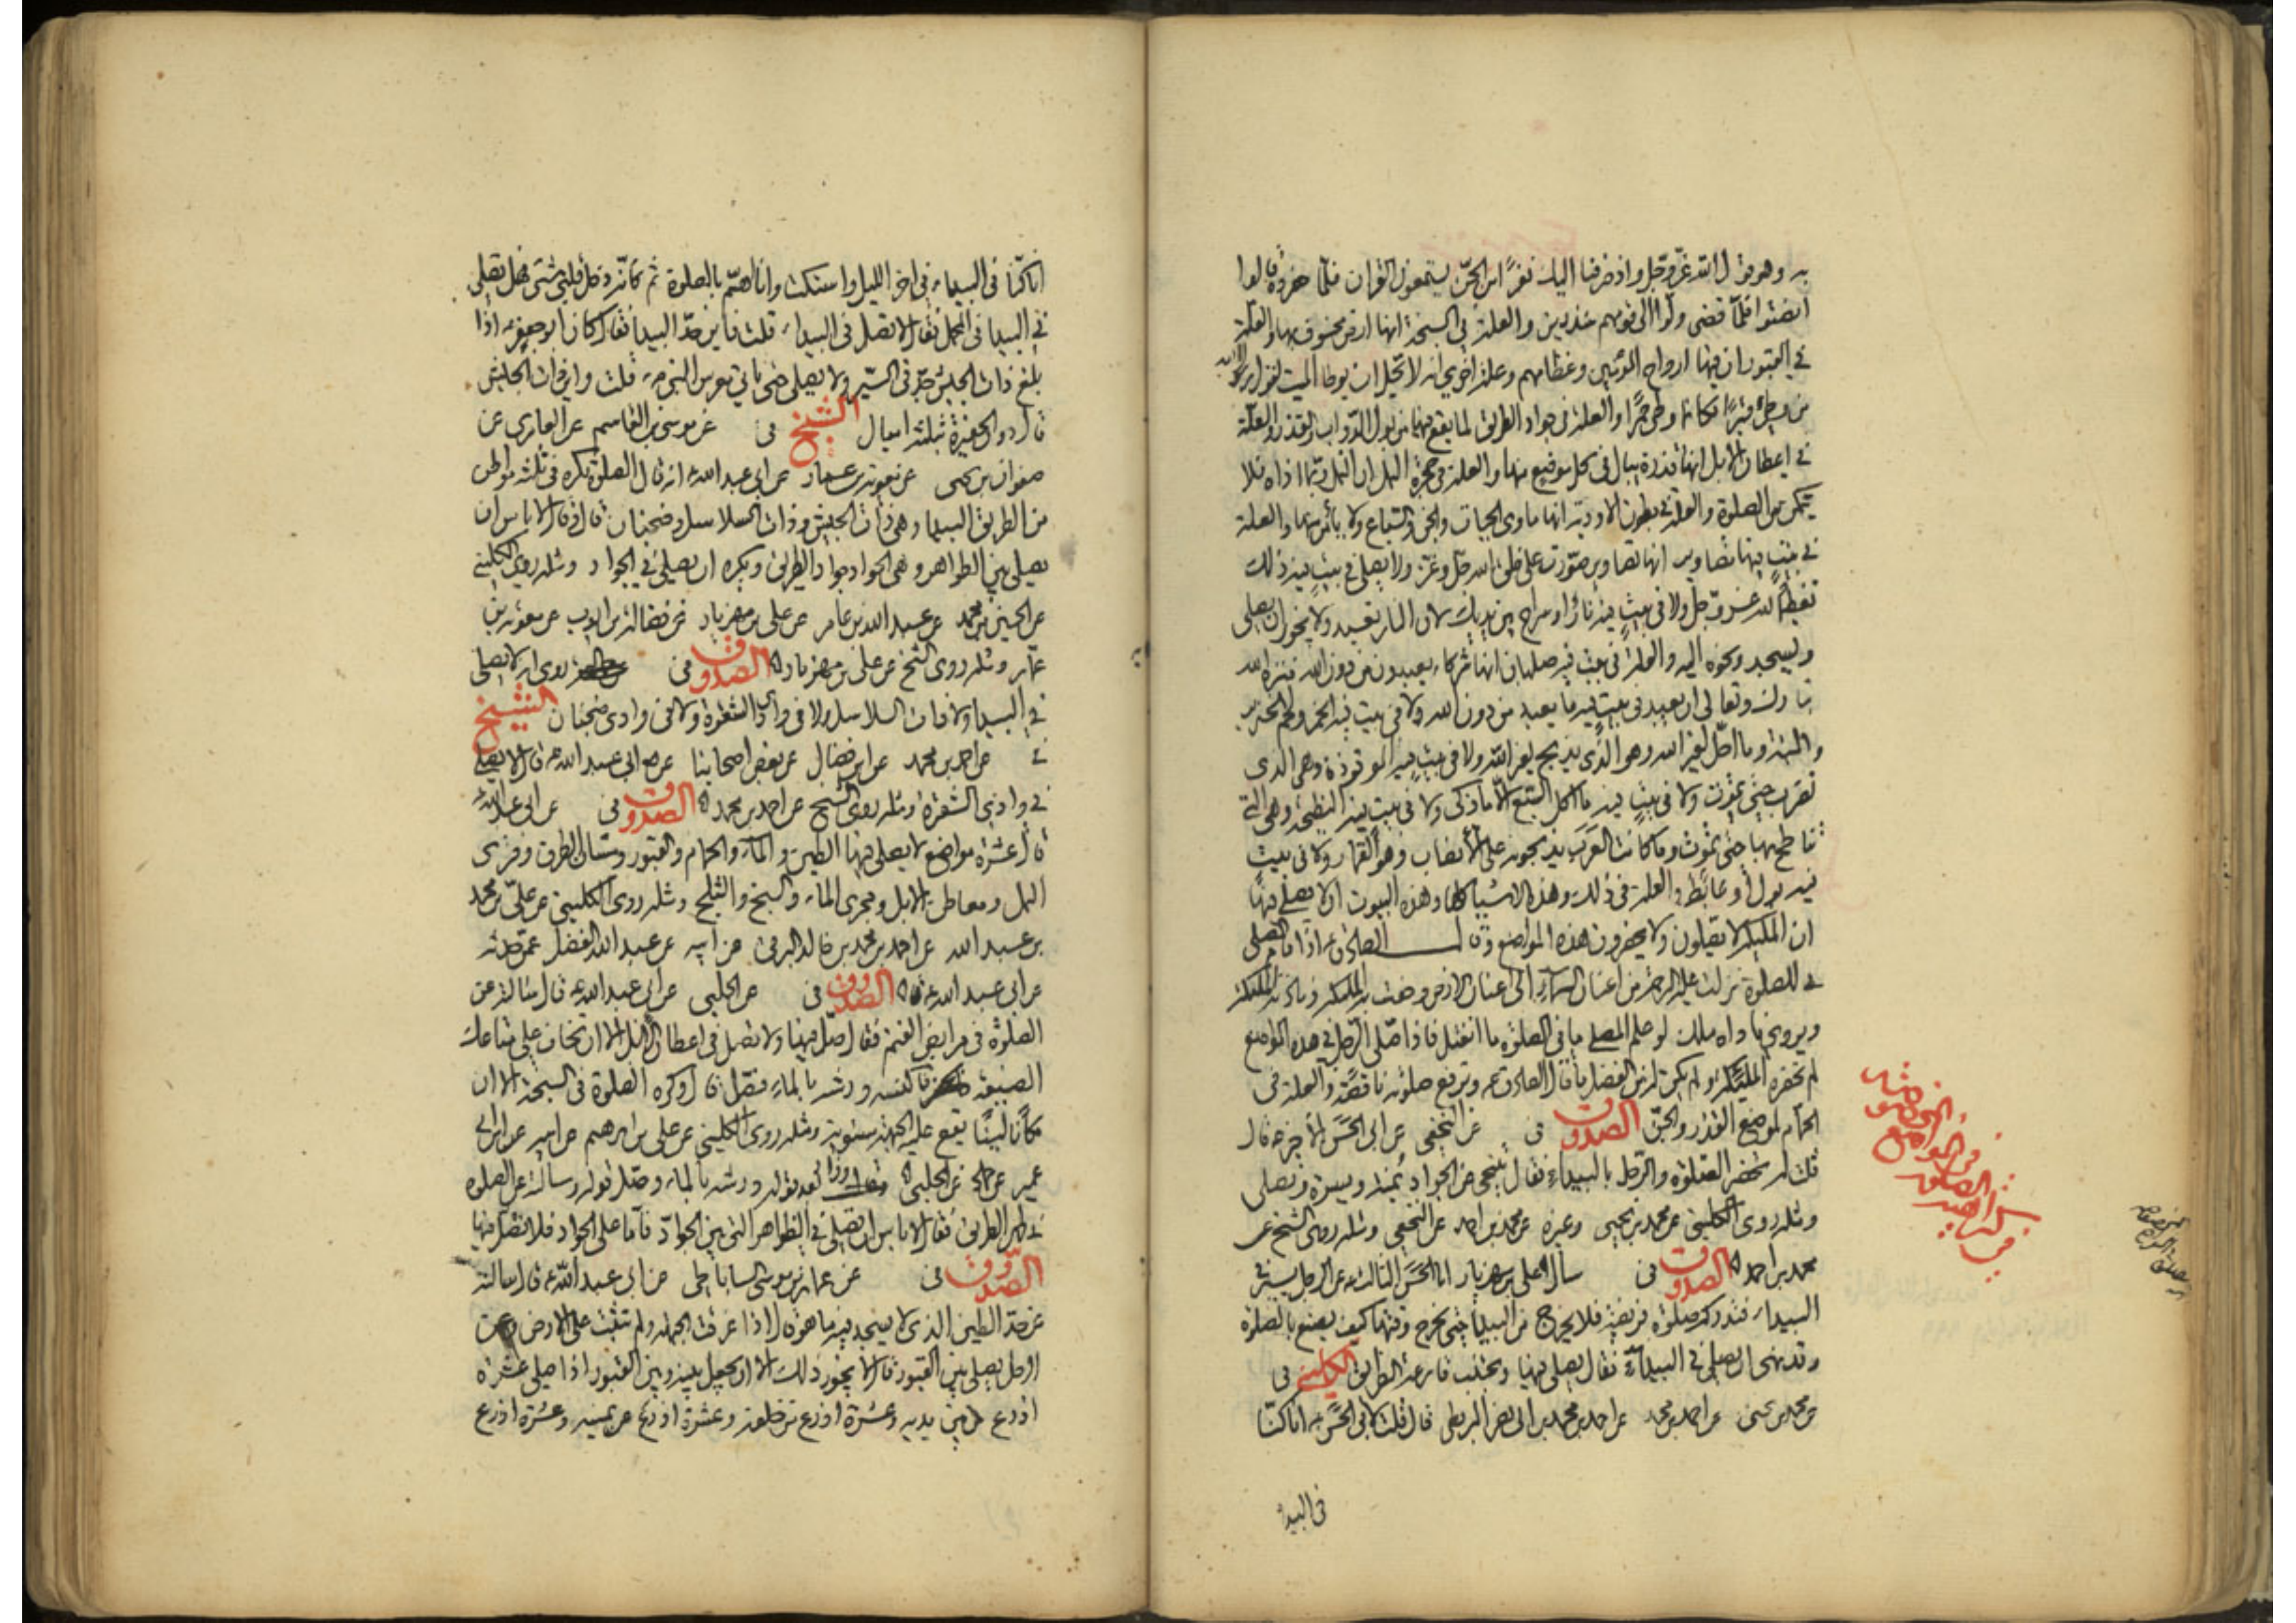 به وهو قول الله عز وجل واذ صرفنا اليك نفرًا من الجن يستمعون القران فلما حضروه قالوا
انصتوا فلما قضى ولوا الى قومهم منذرين والعلة في السبخة انها ارض مخسوف بها والعلة
في القبور ان فيها ارواح المؤمنين وعظامهم وعلة اخرى انه لا تحل ان يوطأ الميت لقول
من وطئ قبرًا فكانما وطئ جمرًا والعلة في جواد الطريق لما يقع فيها من بول الدواب والقذر والعلة
في اعطان الابل انها قذرة يبال في كل موضع منها والعلة في حجرة النمل ان النمل ربما اذاه فلا
يتمكن من الصلوة والعلة في بطون الاودية انها ماوى الحيات والجن والسباع ولا يأمن منها والعلة
في بيت فيها تصاوير انها تصاوير صورت على خلق الله جل وعز ولا يصلى في بيت فيه ذلك
تعظيما لله عز وجل ولا في بيت فيه نار او سراج بين يديك لان النار تعبد ولا يجوز ان يصلى
ويسجد ونحوه اليه والعلة في بيت فيه صلبان انها شركاء يعبدون من دون الله فنزه الله
تبارك وتعالى ان يعبد في بيت فيه ما يعبد من دون الله ولا في بيت فيه الخمر ولحم الخنزير
والميتة وما اهل لغير الله وهو الذي يذبح لغير الله ولا في بيت فيه الموقوذة وهي الذي
تضرب حتى تموت ولا في بيت فيه ما اكل السبع الا ما ذكى ولا في بيت فيه النطيحة وهي التي
تناطح بها حتى تموت وما كانت العرب يذبحونه على الانصاب وهو القمار ولا في بيت
فيه بول او غائط والعلة في ذلك وهذه الاشياء كلها وهذه البيوت ان لا يصلى فيها
ان الملئكة لا يصلون ولا يحضرون هذه المواضع وقال الصادق ع اذا قام المصلى
للصلوة نزلت عليه الرحمة من اعنان السماء الى اعنان الارض وحفت به الملئكة
ويروى ناداه ملك لو علم المصلى ما في الصلوة ما انفتل فاذا صلى الرجل في هذه المواضع
لم تحضره الملئكة ولم يكن له من الفضل ما قال الصادق ع وترفع صلوته ناقصة والعلة في
الحمام لموضع القذر والجن الصدوق في عن النخعي عن ابي الحسن الاخير ع قال
قلت له تحضر الصلوة والرجل بالبيداء فقال يتنحى عن الجواد يمنة ويسرة ويصلى
ومثله روى الكليني عن محمد بن يحيى وغيره عن محمد بن احمد عن النخعي ومثله روى الشيخ عن
محمد بن احمد الصدوق في سال علي بن مهزيار ابا الحسن الثالث ع عن الرجل يسير في
البيداء فتدركه صلوة فريضة فلا يخرج من البيداء حتى يخرج وقتها كيف يصنع بالصلوة
وقد نهى ان يصلى في البيداء فقال يصلى فيها ويجتنب قارعة الطريق الكليني في
عن محمد بن يحيى عن احمد بن محمد عن احمد بن محمد بن ابي نصر البزنطي قال قلت لابي الحسن ع انا كنا
في البيداء
انا كنا في البيداء في اخر الليل واستكت وانا اهم بالصلوة ثم كانه دخل قلبي شئ هل يصلى
في البيداء في المحمل فقال لا تصل في البيداء قلت فاين حد البيداء فقال كان ابو جعفر ع اذا
بلغ ذات الجيش جد في السير ولا يصلى حتى ياتي معرس النبي ص قلت واين ذات الجيش
قال دون الحفيرة بثلثة اميال الشيخ في عن موسى بن القاسم عن العامري عن
صفوان بن يحيى عن معوية بن عمار عن ابي عبد الله ع انه قال الصلوة تكره في ثلثة مواطن
من الطريق البيداء وهي ذات الجيش وذات السلاسل وضجنان قال وقال لا باس ان
يصلى بين الظواهر وهي الجواد جواد الطريق ويكره ان يصلى في الجواد ومثله روى الكليني
عن الحسين بن محمد عن عبد الله بن عامر عن علي بن مهزيار عن فضالة بن ايوب عن معوية بن
عمار ومثله روى الشيخ عن علي بن مهزيار الصدوق في روى انه لا يصلى
في البيداء ولا ذات السلاسل ولا في وادي الشقرة ولا في وادي ضجنان الشيخ
في عن احمد بن محمد عن ابن فضال عن بعض اصحابنا عن ابي عبد الله ع قال لا يصلى
في وادي الشقرة ومثله روى الشيخ عن احمد بن محمد الصدوق في عن ابي عبد الله
قال عشرة مواضع لا يصلى فيها الطين والماء والحمام والقبور ومسان الطرق وقرى
النمل ومعاطن الابل ومجرى الماء والسبخ والثلج ومثله روى الكليني عن علي بن محمد
بن عبد الله عن احمد بن محمد بن خالد البرقي عن ابيه عن عبد الله الفضل عمن حدثه
عن ابي عبد الله ع الصدوق في عن الحلبي عن ابي عبد الله ع قال سالته عن
الصلوة في مرابض الغنم فقال صل فيها ولا تصل في اعطان الابل الا ان تخاف على متاعك
الضيعة فاكنسه ورشه بالماء وصل قال وكره الصلوة في السبخة الا ان
مكانًا لينًا يقع عليه الجبهة مستوية ومثله روى الكليني عن علي بن ابرهيم عن ابيه عن ابن ابي
عمير عن حماد عن الحلبي وزاد بعد قوله ورشه بالماء وصل قوله وسالته عن الصلوة
في ظهر الطريق فقال لا باس ان تصلى في الظواهر التي بين الجواد فاما على الجواد فلا تصل فيها
الصدوق في عن عمار بن موسى الساباطي عن ابي عبد الله ع قال سالته
عن حد الطين الذي لا يسجد فيه ما هو قال اذا غرقت الجبهة ولم تثبت على الارض وعن
الرجل يصلى بين القبور قال لا يجوز ذلك الا ان يجعل بينه وبين القبور اذا صلى عشرة
اذرع من بين يديه وعشرة اذرع من خلفه وعشرة اذرع عن يمينه وعشرة اذرع